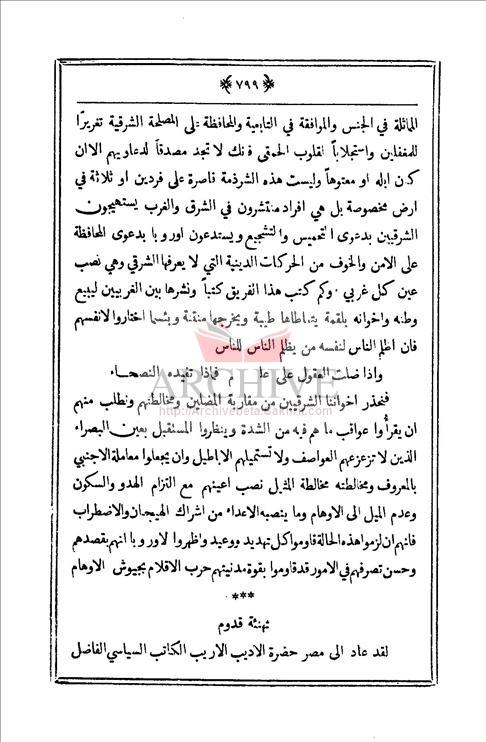 ﴿ ٧٩٩ ﴾
المماثلة في الجنس والموافقة في التابعية والمحافظة على المصلحة الشرقية تغريرًا
للمغفلين واستجلاباً لقلوب الحمقى فانك لا تجد مصدقاً لدعاويهم الا ان
كان ابله او معتوهاً وليست هذه الشرذمة قاصرة على فردين او ثلاثة في
ارض مخصوصة بل هي افراد منتشرون في الشرق والغرب يستهيجون
الشرقيين بدعوى التحميس والتشجيع ويستدعون اوروبا بدعوى المحافظة
على الامن والخوف من الحركات الدينية التي لا يعرفها الشرقي وهي نصب
عين كل غربي . وكم كتب هذا الفريق كتباً ونشرها بين الغربيين ليبيع
وطنه واخوانه بلقمة يتعاطاها طيبة ويخرجها منتنة وبئسما اختاروا لانفسهم
فان اظلم الناس لنفسه من يظلم الناس للناس
واذا ضلت العقول على علم فماذا تفيده النصحاء
فنحذر اخواننا الشرقيين من مقاربة المضلين ومخالطتهم ونطلب منهم
ان يقرأوا عواقب ما هم فيه من الشدة وينظروا المستقبل بعين البصراء
الذين لا تزعزعهم العواصف ولا تستميلهم الاباطيل وان يجعلوا معاملة الاجنبي
بالمعروف ومخالطته مخالطة المثيل نصب اعينهم مع التزام الهدو والسكون
وعدم الميل الى الاوهام وما ينصبه الاعداء من اشراك الهيجان والاضطراب
فانهم ان لزموا هذه الحالة قاوموا كل تهديد ووعيد واظهروا لاوروبا انهم بقصدهم
وحسن تصرفهم في الامور قد قاوموا بقوة مدنيتهم حرب الاقلام بجيوش الاوهام
***
تهنئة قدوم
لقد عاد الى مصر حضرة الاديب الاريب الكاتب السياسي الفاضل
ARCHIVE
http://Archivebeta.Sakhrit.com